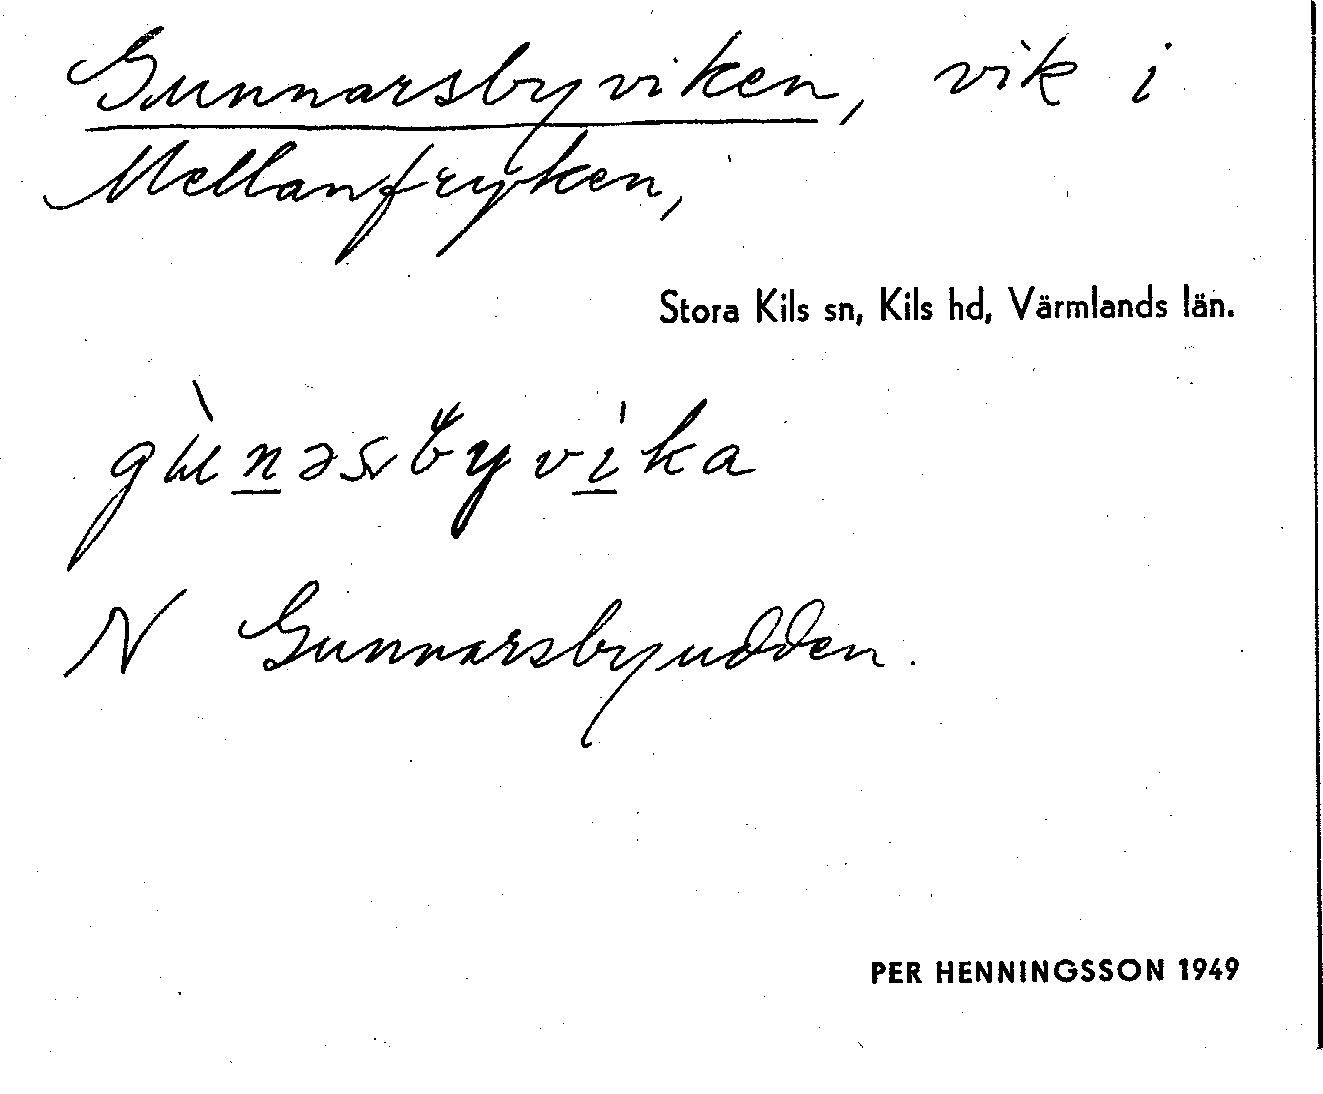 Gunnarsbyviken, vik i
Mellanfryken,
Stora Kils sn, Kils hd, Värmlands län.
N Gunnarsbyudden.
PER HENNINGSSON 1949